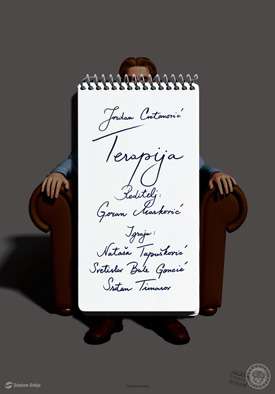 Jordan Cvetanović
Terapija
Reditelj:
Goran Marković
Igraju:
Nataša Tapušković
Svetislav Bule Goncić
Srđan Timarov